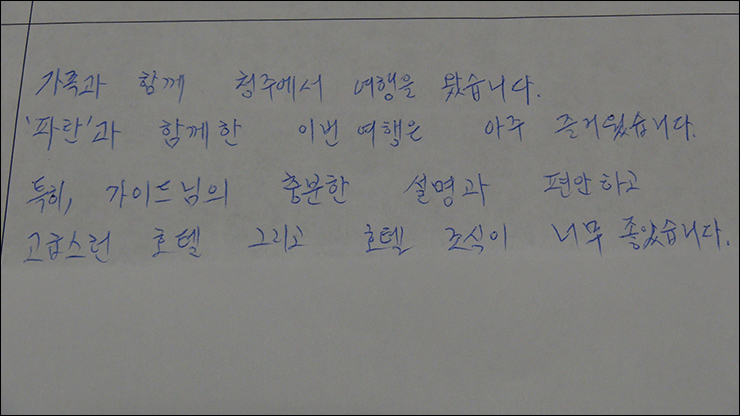 가족과 함께 청주에서 여행을 왔습니다.
'파란'과 함께한 이번 여행은 아주 즐거웠습니다.
특히, 가이드님의 충분한 설명과 편안하고
고급스런 호텔 그리고 호텔 조식이 너무 좋았습니다.